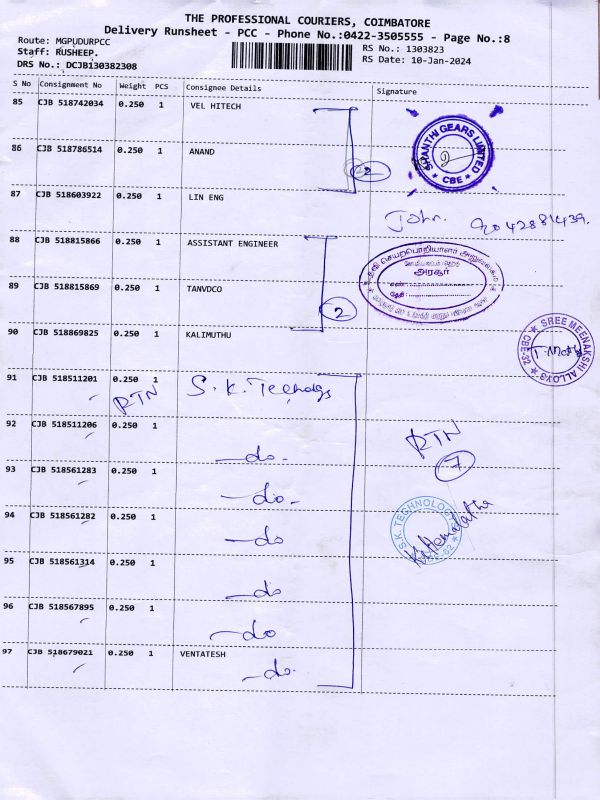 THE PROFESSIONAL COURIERS, COIMBATORE
Delivery Runsheet - PCC - Phone No.:0422-3505555 - Page No.:8
Route: MGPUDURPCC
Staff: RUSHEEP.
DRS No.: DCJB130382308
RS No.: 1303823
RS Date: 10-Jan-2024
S No Consignment No Weight PCS Consignee Details Signature
85 CJB 518742034 0.250 1 VEL HITECH
SHANTHI GEARS LIMITED
* CBE *
86 CJB 518786514 0.250 1 ANAND
2
87 CJB 518603922 0.250 1 LIN ENG
John. 9042881439.
88 CJB 518815866 0.250 1 ASSISTANT ENGINEER
அரசூர்
89 CJB 518815869 0.250 1 TANVDCO
2
90 CJB 518869825 0.250 1 KALIMUTHU
* SREE MEENAKSHI ALLOYS * CBE-22
91 CJB 518511201 0.250 1 S. K. Technolgs
RTN
92 CJB 518511206 0.250 1 -do-
RTN
7
93 CJB 518561283 0.250 1 -do-
94 CJB 518561282 0.250 1 -do
S.K. TECHNOLOGY
K. Hemalatha
95 CJB 518561314 0.250 1 -do
96 CJB 518567895 0.250 1 -do
97 CJB 518679021 0.250 1 VENTATESH
-do-